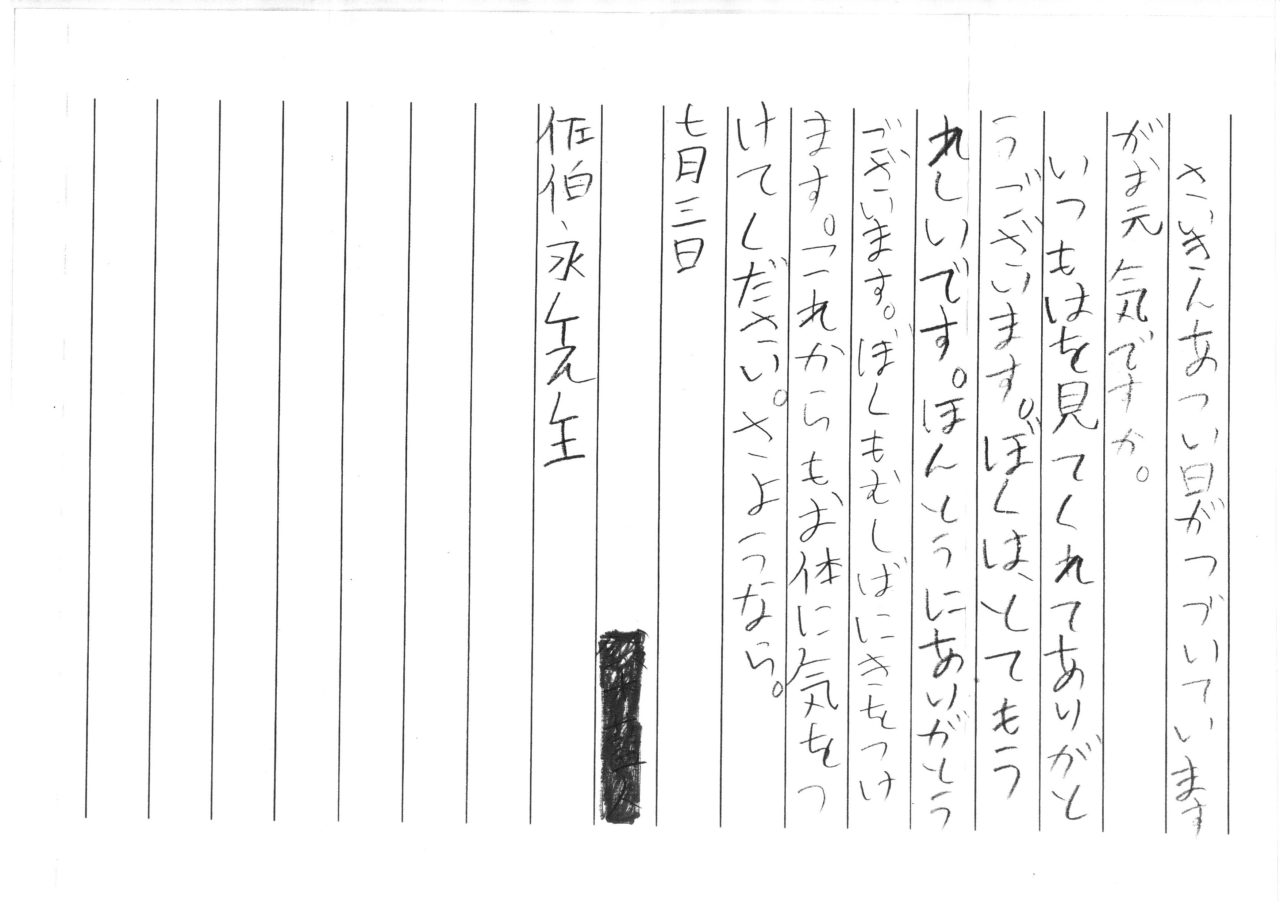 さいきんあつい日がつづいています
がお元気ですか。
いつもはを見てくれてありがと
うございます。ぼくは、とてもう
れしいです。ほんとうにありがとう
ございます。ぼくもむしばにきをつけ
ます。これからもお体に気をつ
けてください。さようなら。
七月三日
佐伯、永先生